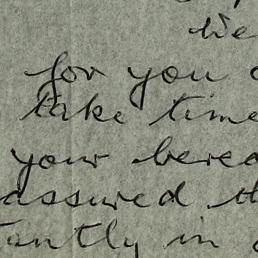 We
for you
take time
your berea
assured th
antly in